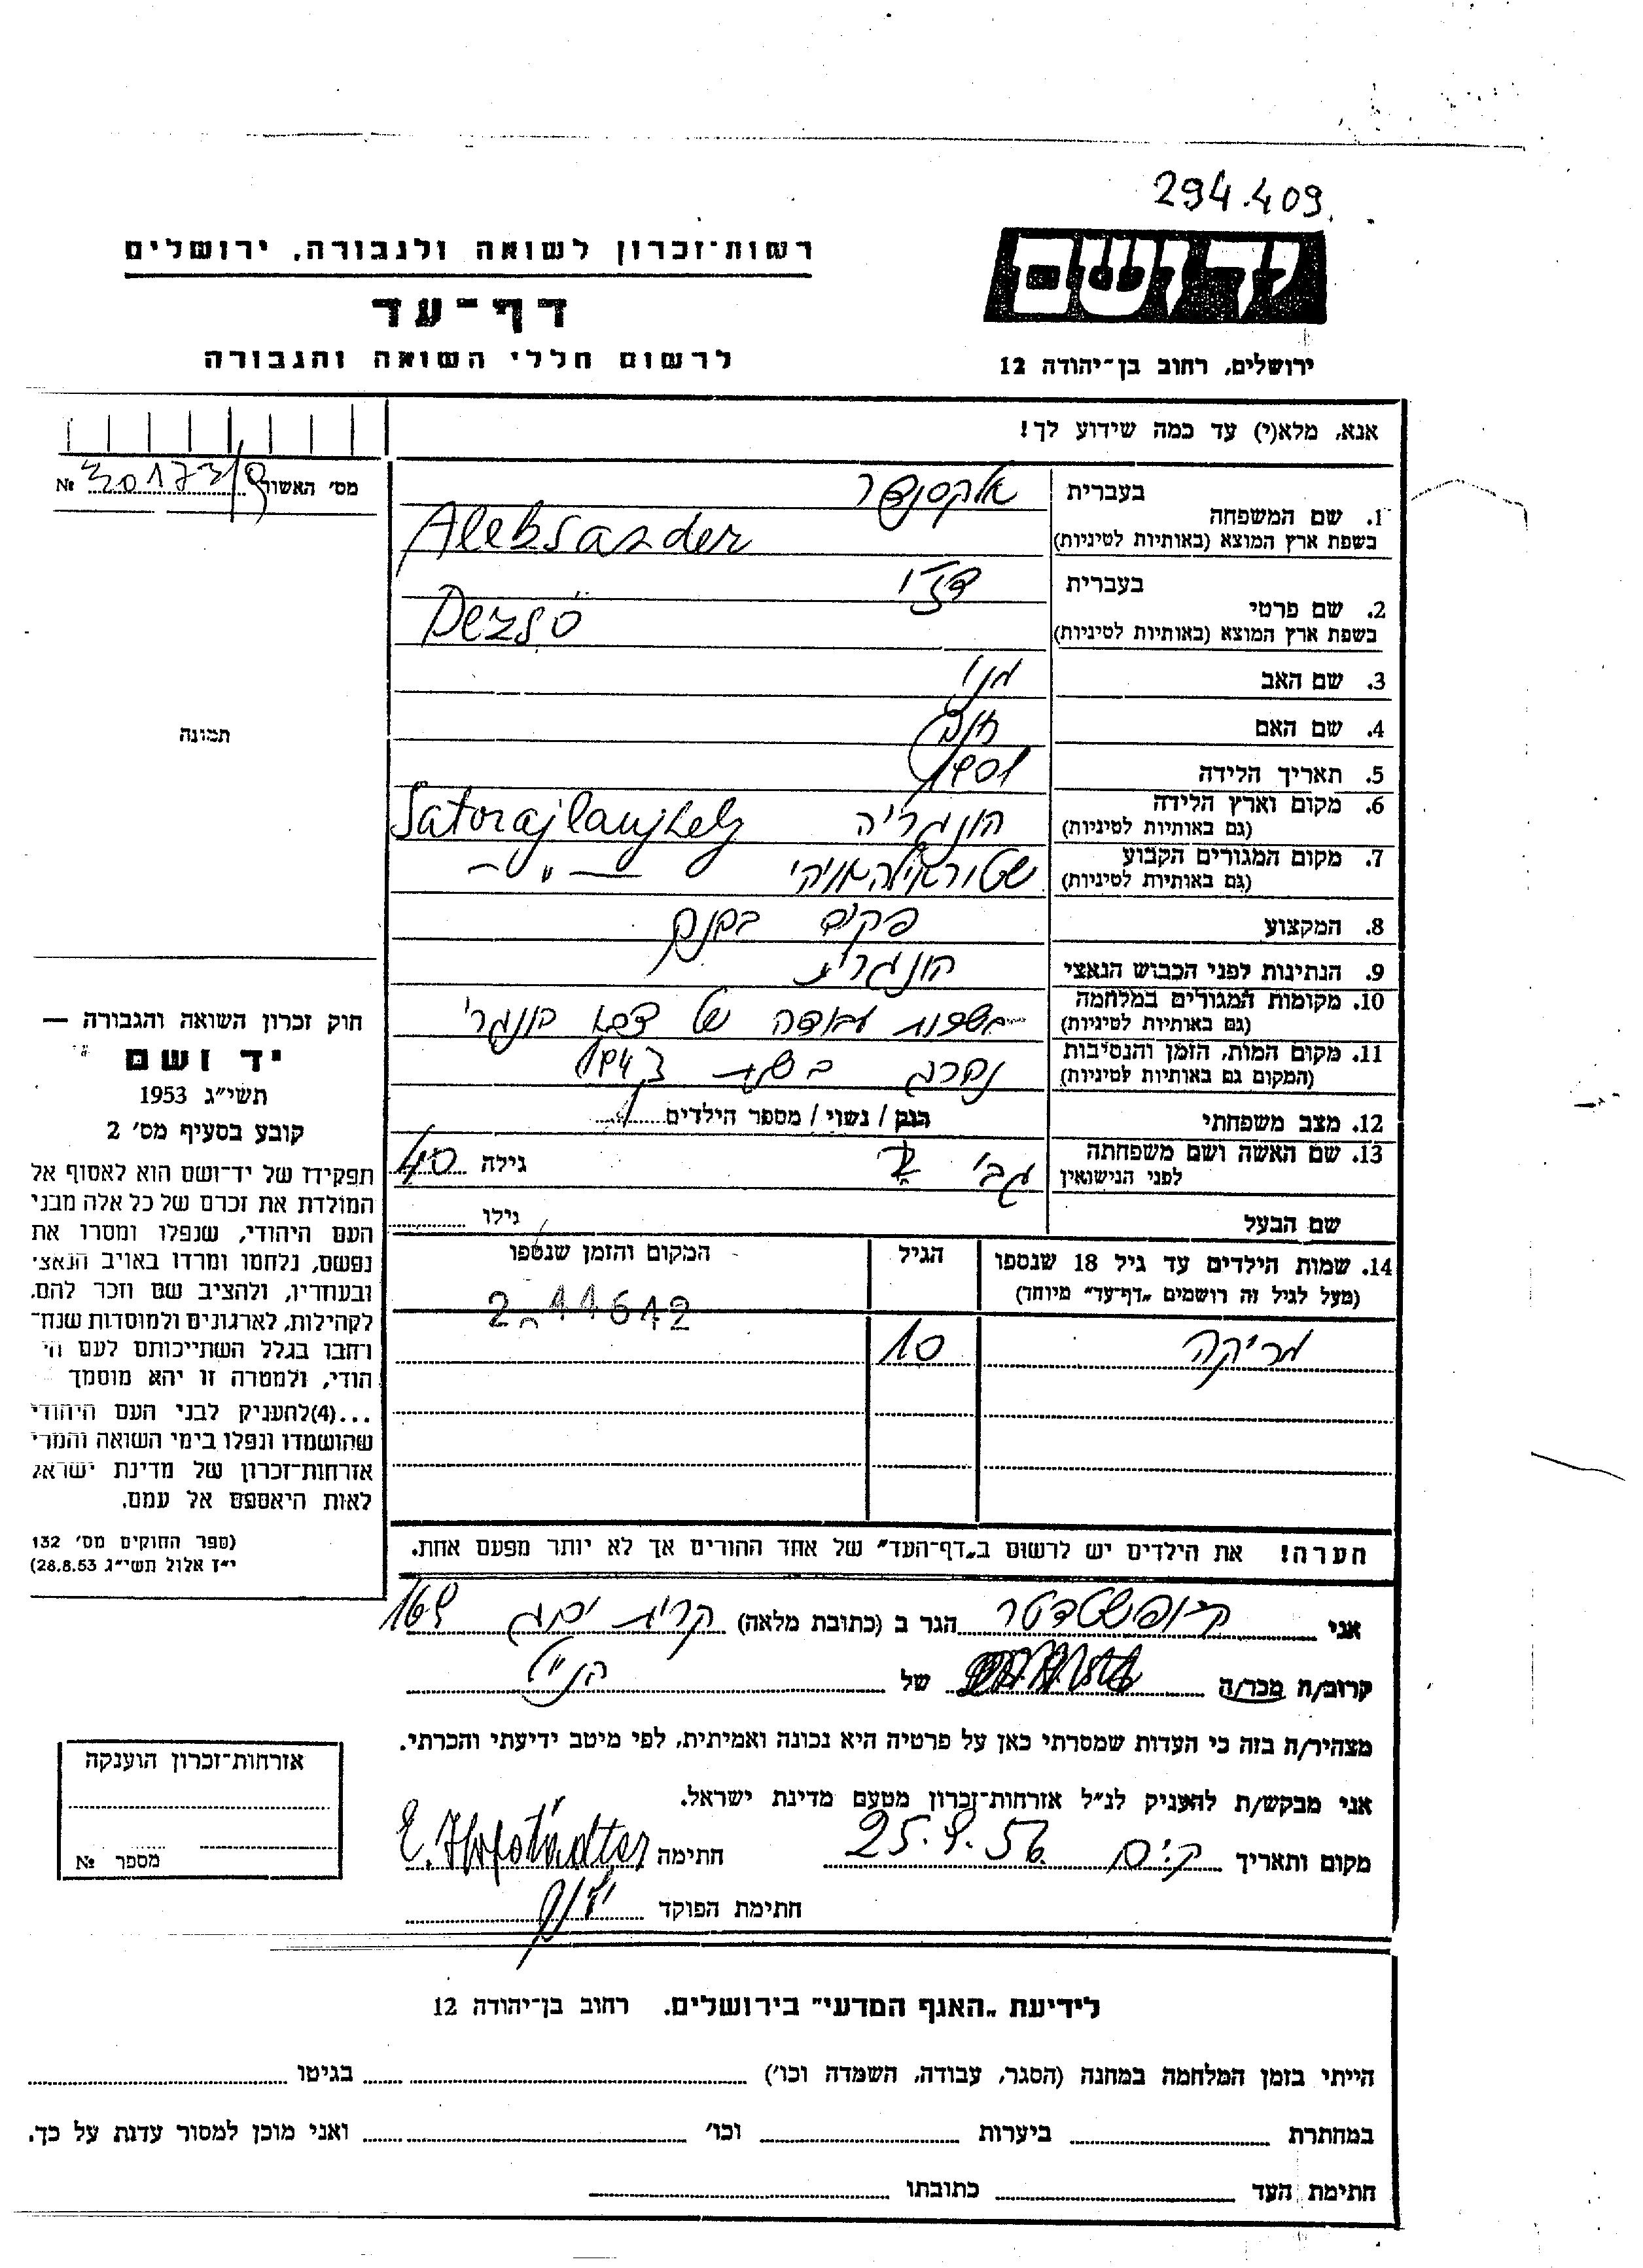 294.409
יד ושם
ירושלים, רחוב בן־יהודה 12
רשות־זכרון לשואה ולגבורה, ירושלים
דף־עד
לרשום חללי השואה והגבורה
אנא, מלא(י) עד כמה שידוע לך!
מס׳ האשור №
1. שם המשפחה
בעברית אלקסנדר
בשפת ארץ המוצא (באותיות לטיניות) Aleksander
2. שם פרטי
בעברית דז'ו
בשפת ארץ המוצא (באותיות לטיניות) Dezsö
3. שם האב מני
4. שם האם
5. תאריך הלידה
6. מקום וארץ הלידה
(גם באותיות לטיניות) הונגריה Satorajlaujhely
7. מקום המגורים הקבוע
(גם באותיות לטיניות) — " —
8. המקצוע פקיד בבנק
9. הנתינות לפני הכבוש הנאצי הונגרית
10. מקומות המגורים במלחמה
(גם באותיות לטיניות) עבודה של צבא הונגרי
11. מקום המות, הזמן והנסיבות
(המקום גם באותיות לטיניות) נהרג בשנת
12. מצב משפחתי רווק / נשוי / מספר הילדים
13. שם האשה ושם משפחתה
לפני הנישואין גבי גילה 40
שם הבעל גילו
14. שמות הילדים עד גיל 18 שנספו
(מעל לגיל זה רושמים „דף־עד" מיוחד)
הגיל
המקום והזמן שנספו
מריקה 10
הערה! את הילדים יש לרשום ב„דף־העד" של אחד ההורים אך לא יותר מפעם אחת.
אני הופשטדטר הגר ב (כתובת מלאה) קרית ים
קרוב/ה מכר/ה של הנ"ל
מצהיר/ה בזה כי העדות שמסרתי כאן על פרטיה היא נכונה ואמיתית, לפי מיטב ידיעתי והכרתי.
אני מבקש/ת להעניק לנ"ל אזרחות־זכרון מטעם מדינת ישראל.
מקום ותאריך ק. ים 25.9.56 חתימה E. Hofstädter
חתימת הפוקד
תמונה
חוק זכרון השואה והגבורה —
יד ושם
תשי"ג 1953
קובע בסעיף מס׳ 2
תפקידו של יד־ושם הוא לאסוף אל
המולדת את זכרם של כל אלה מבני
העם היהודי, שנפלו ומסרו את
נפשם, נלחמו ומרדו באויב הנאצי
ובעוזריו, ולהציב שם וזכר להם,
לקהילות, לארגונים ולמוסדות שנח־
רחבו בגלל השתייכותם לעם הי
הודי, ולמטרה זו יהא מוסמך
...(4)להעניק לבני העם היהודי
שהושמדו ונפלו בימי השואה והמרי
אזרחות־זכרון של מדינת ישראל
לאות היאספם אל עמם.
(ספר החוקים מס׳ 132
י"ז אלול תשי"ג 28.8.53)
אזרחות־זכרון הוענקה
מספר №
לידיעת „האגף המדעי" בירושלים, רחוב בן־יהודה 12
הייתי בזמן המלחמה במחנה (הסגר, עבודה, השמדה וכו׳) בגיטו
במחתרת ביערות וכו׳ ואני מוכן למסור עדות על כך.
חתימת העד כתובתו